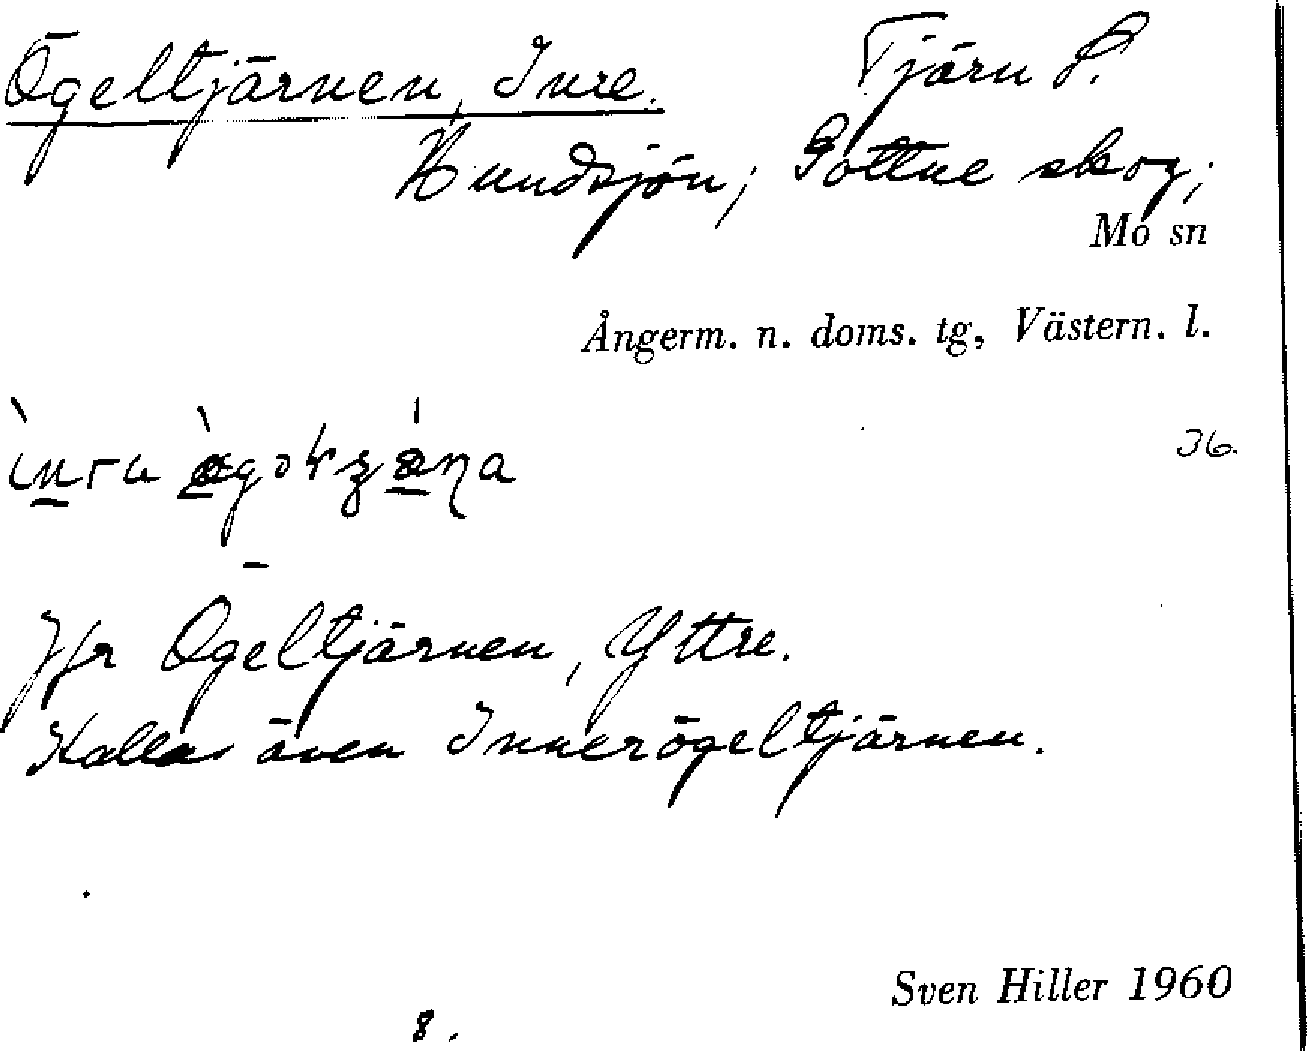 Ögeltjärnen, Inre. Tjärn S.
Hundsjön; Gottne skog;
Mo sn
Ångerm. n. doms. tg, Västern. l.
36.
Jfr Ögeltjärnen, Yttre.
Kallas även Innerögeltjärnen.
Sven Hiller 1960
8.